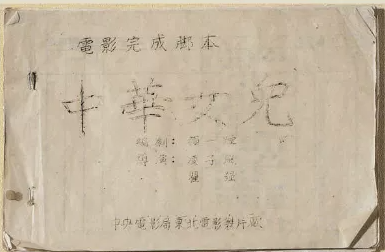 電影完成脚本
中華女兒
編劇：顏一煙
導演：凌子風
翟強
中央電影局東北電影製片廠